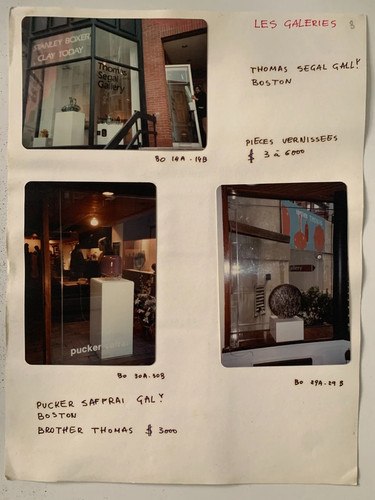 LES GALERIES 8
STANLEY BOXER
CLAY TODAY
Thomas
Segal
Gallery
THOMAS SEGAL GALLY
BOSTON
PIÈCES VERNISSEES
$ 3 à 6000
BO 14A - 14B
pucker
BO 30A - 30B
BO 29A - 29 B
PUCKER SAFFRAI GALY
BOSTON
BROTHER THOMAS $ 3000